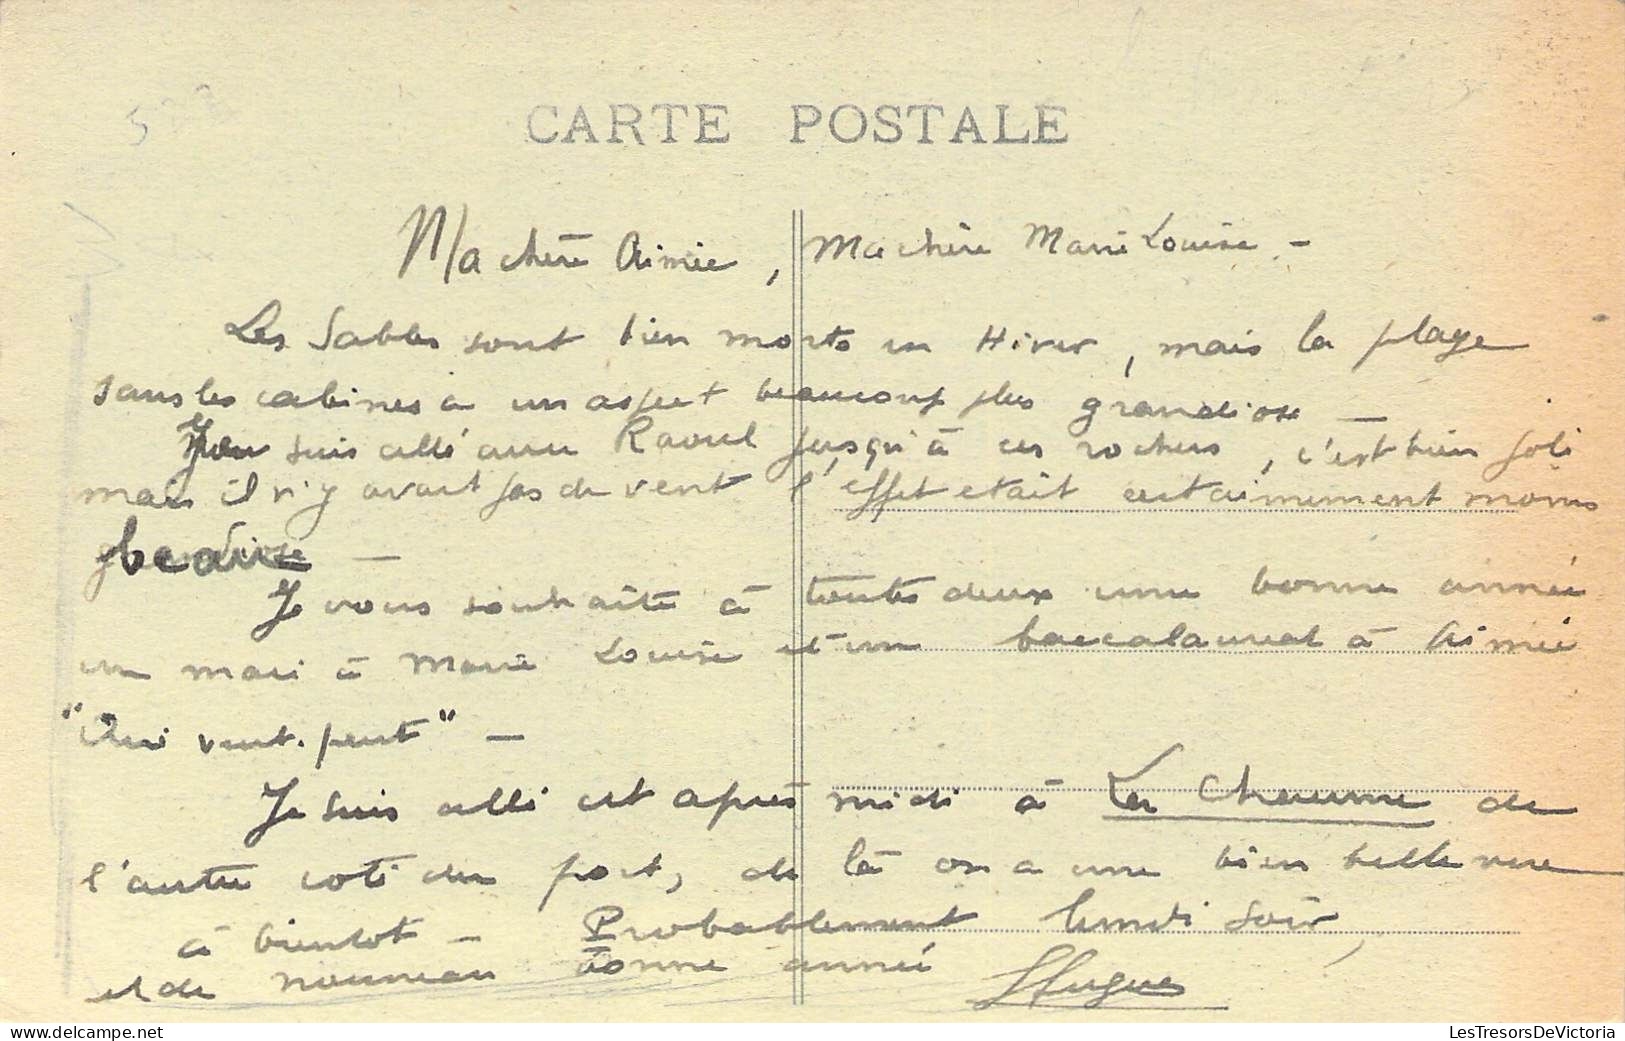 CARTE POSTALE
Ma chère Aimée, Ma chère Marie Louise -
Les Sables sont bien morts en Hiver, mais la plage
sans les cabines a un aspect beaucoup plus grandiose -
J'y suis allé avec Raoul jusqu'à ces rochers, c'est bien joli
mais il n'y avait pas de vent l'effet etait certainement moins
Je vous souhaite à toutes deux une bonne année
un mari à Marie Louise et un baccalaureat à Aimée
"Qui veut. peut" -
Je suis allé cet après midi à La Chaume de
l'autre coté du port, de là on a une bien belle vue
à bientot - Probablement lundi soir,
et de nouveau bonne année Hugues
LesTresorsDeVictoria.com